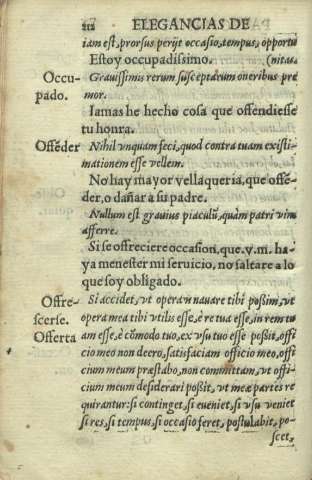 212 ELEGANCIAS DE
iam est, prorsus perijt occasio, tempus, opportu
Estoy occupadissimo. (nitas.
Occu- Grauissimis rerum susceptarum oneribus pre
pado. mor.
Iamas he hecho cosa que offendiesse
tu honra.
Offẽder Nihil vnquam feci, quod contra tuam existi-
mationem esse vellem.
No hay mayor vellaqueria, que offẽ-
der, o dañar a su padre.
Nullum est grauius piaculũ, quàm patri vim
afferre.
Si se offreciere occasion, que. v. m. ha-
ya menester mi seruicio, no faltare a lo
que soy obligado.
Offre- Si accidet, vt operam nauare tibi poßim, vt
scerse. opera mea tibi vtilis esse, è re tua esse, in rem tu
Offerta am esse, è cõmodo tuo, ex vsu tuo esse poßit, offi
cio meo non deero, satisfaciam officio meo, offi
cium meum præstabo, non committam, vt offi-
cium meum desiderari poßit, vt meæ partes re
quirantur: si continget, si eueniet, si vsu veniet
si res, si tempus, si occasio feret, postulabit, po-
scet,